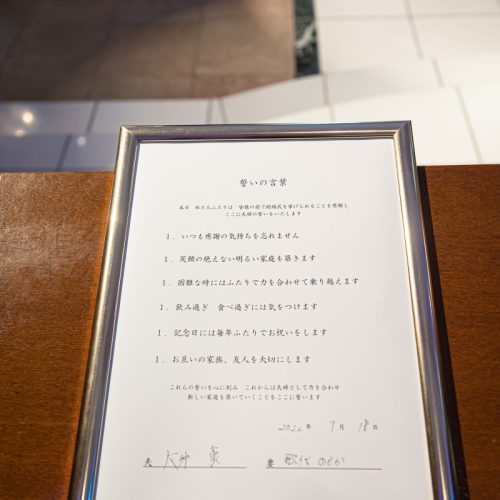 誓いの言葉
本日　私たちふたりは　皆様の前で結婚式を挙げられることを感謝し
ここに夫婦の誓いをいたします
1．いつも感謝の気持ちを忘れません
1．笑顔の絶えない明るい家庭を築きます
1．困難な時にはふたりで力を合わせて乗り越えます
1．飲み過ぎ　食べ過ぎには気をつけます
1．記念日には毎年ふたりでお祝いをします
1．お互いの家族、友人を大切にします
これらの誓いを心に刻み　これからは夫婦として力を合わせ
新しい家庭を築いていくことをここに誓います
2022 年 7 月 18 日
夫 妻 歌代 のどか